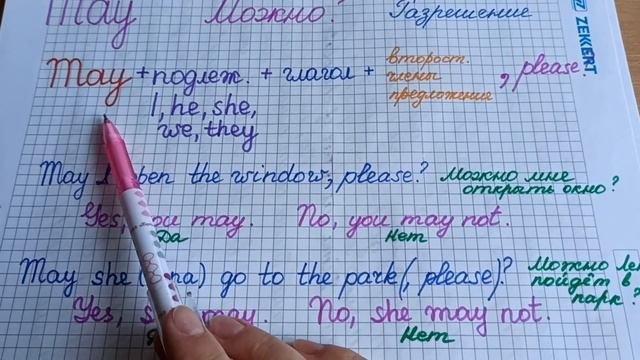 May Можно? Разрешение
ZEKERT.
May + подлеж. + глагол + второст. члены предложения, please
I, he, she,
we, they
May open the window, please? Можно мне открыть окно?
Yes, you may. No, you may not.
Да Нет
May she go to the park (, please)? Можно пойдёт в парк?
Yes, may. No, she may not.
Нет